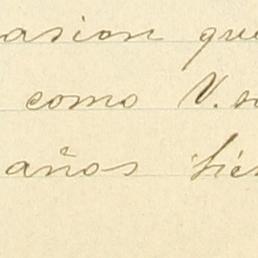 asion que
como V. s
años hé